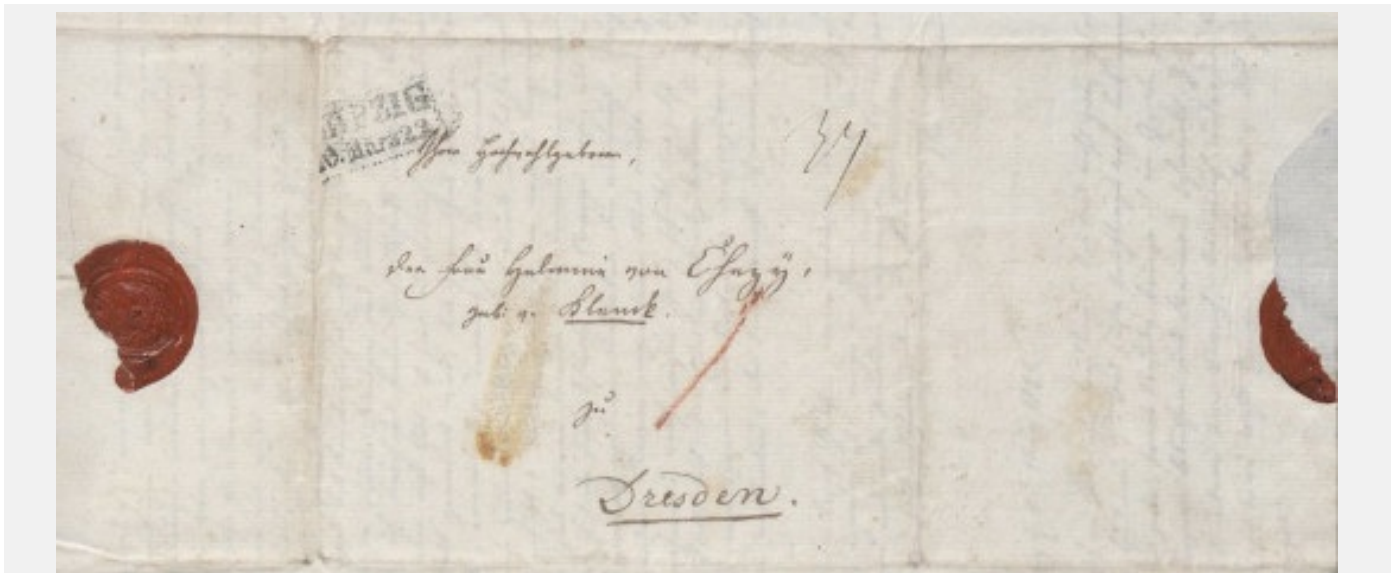 LEIPZIG
10. März 22
Ihro Hochwohlgeboren,
der Frau Helmine von Chezÿ,
geb: v. Klenck.
zu
Dresden.